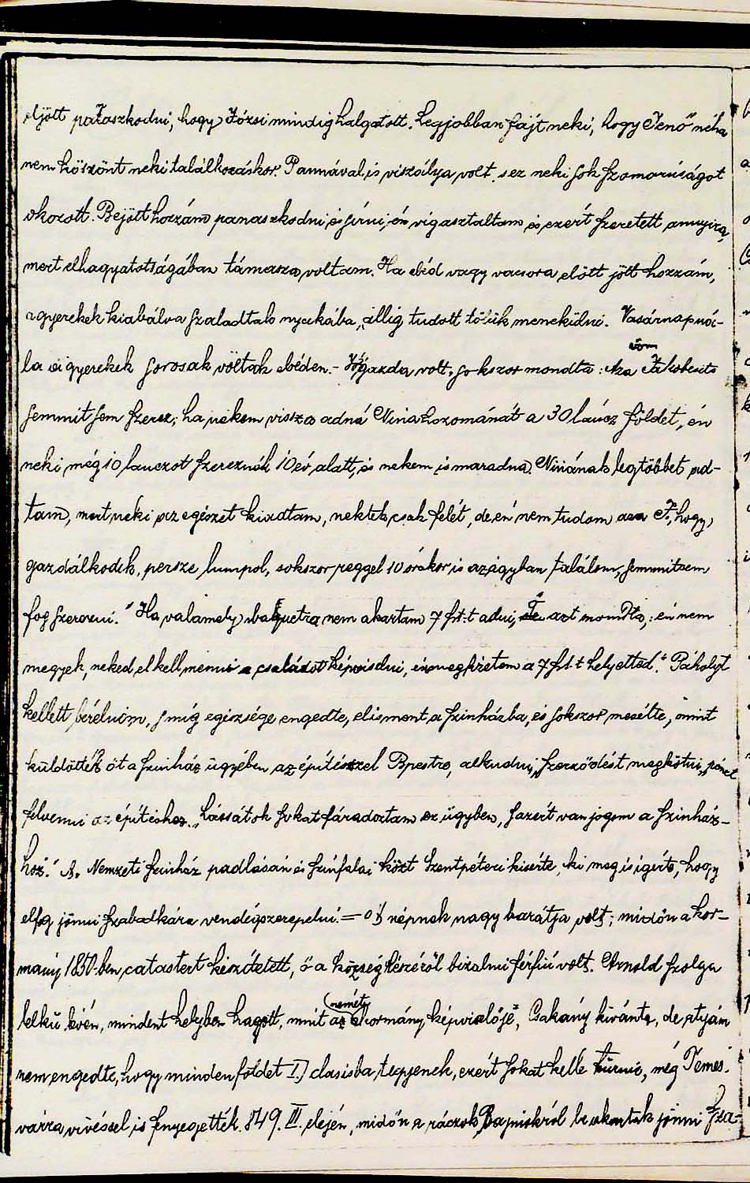 eljött panaszkodni, hogy Józsi mindig halgatott. Legjobban fájt neki, hogy Jenő néha
nem köszönt neki találkozáskor. Pannával is viszálya volt, s ez neki sok szomorúságot
okozott. Bejött hozzám panaszkodni és sírni, én vigasztaltam és ezért szeretett annyira,
mert elhagyatotságában támasza voltam. Ha ebéd vagy vacsora előtt jött hozzám,
a gyerekek kiabálva szaladtak nyakába, alig tudott tőlük menekülni. Vasárnap ná-
la a gyerekek sorosak voltak ebéden. - Jó gazda volt, sokszor mondta: Az a
semmit sem szerez, ha nekem vissza adná Nina hozományát a 30 láncz földet, én
neki még 10 lánczot szereznék 10 év alatt, és nekem is maradna. Ninának legtöbbet ad-
tam, mert neki az egészet kiadtam, nektek csak felét, de én nem tudom az a J. hogy
gazdálkodik, persze lumpol, sokszor reggel 10 órakor is az ágyban találom, semmit sem
fog szerezni." Ha valamely bankettra nem akartam 7 frt-t adni, azt mondta: én nem
megyek, neked el kell menni a családot képviselni, én megfizetem a 7 frt-t helyetted." Páholyt
kellett bérelnöm, s míg egészsége engedte, elis ment a szinházba, és sokszor mesélte, amint
küldötték őt a szinház ügyében az építészszel Bpestre, alkudni, szerződést megkötni, pénzt
felvenni az építéshez. Lássátok sokat fáradoztam ez ügyben, s azért van jogom a szinház-
hoz." A Nemzeti szinház padlásán és szinfalai közt Szentpéteri kisérte, ki meg is igérte, hogy
el fog jönni Szabadkára vendégszerepelni. = Ő népnek nagy barátja volt; midőn a kor-
mány 1850-ben catastert készítetett, ő a község részéről bizalmi férfiú volt. Arnold szolga
lelkű lévén, mindent helyben hagyott, mit a német kormány képviselője, Csakány kívánta, de atyám
nem engedte, hogy minden földet I) classisba tegyenek, ezért sokat kelle tűrnie, még Temes-
várra vivéssel is fenyegették. 849. III. elején, midőn a ráczok Bajmokról be akartak jönni Sza-